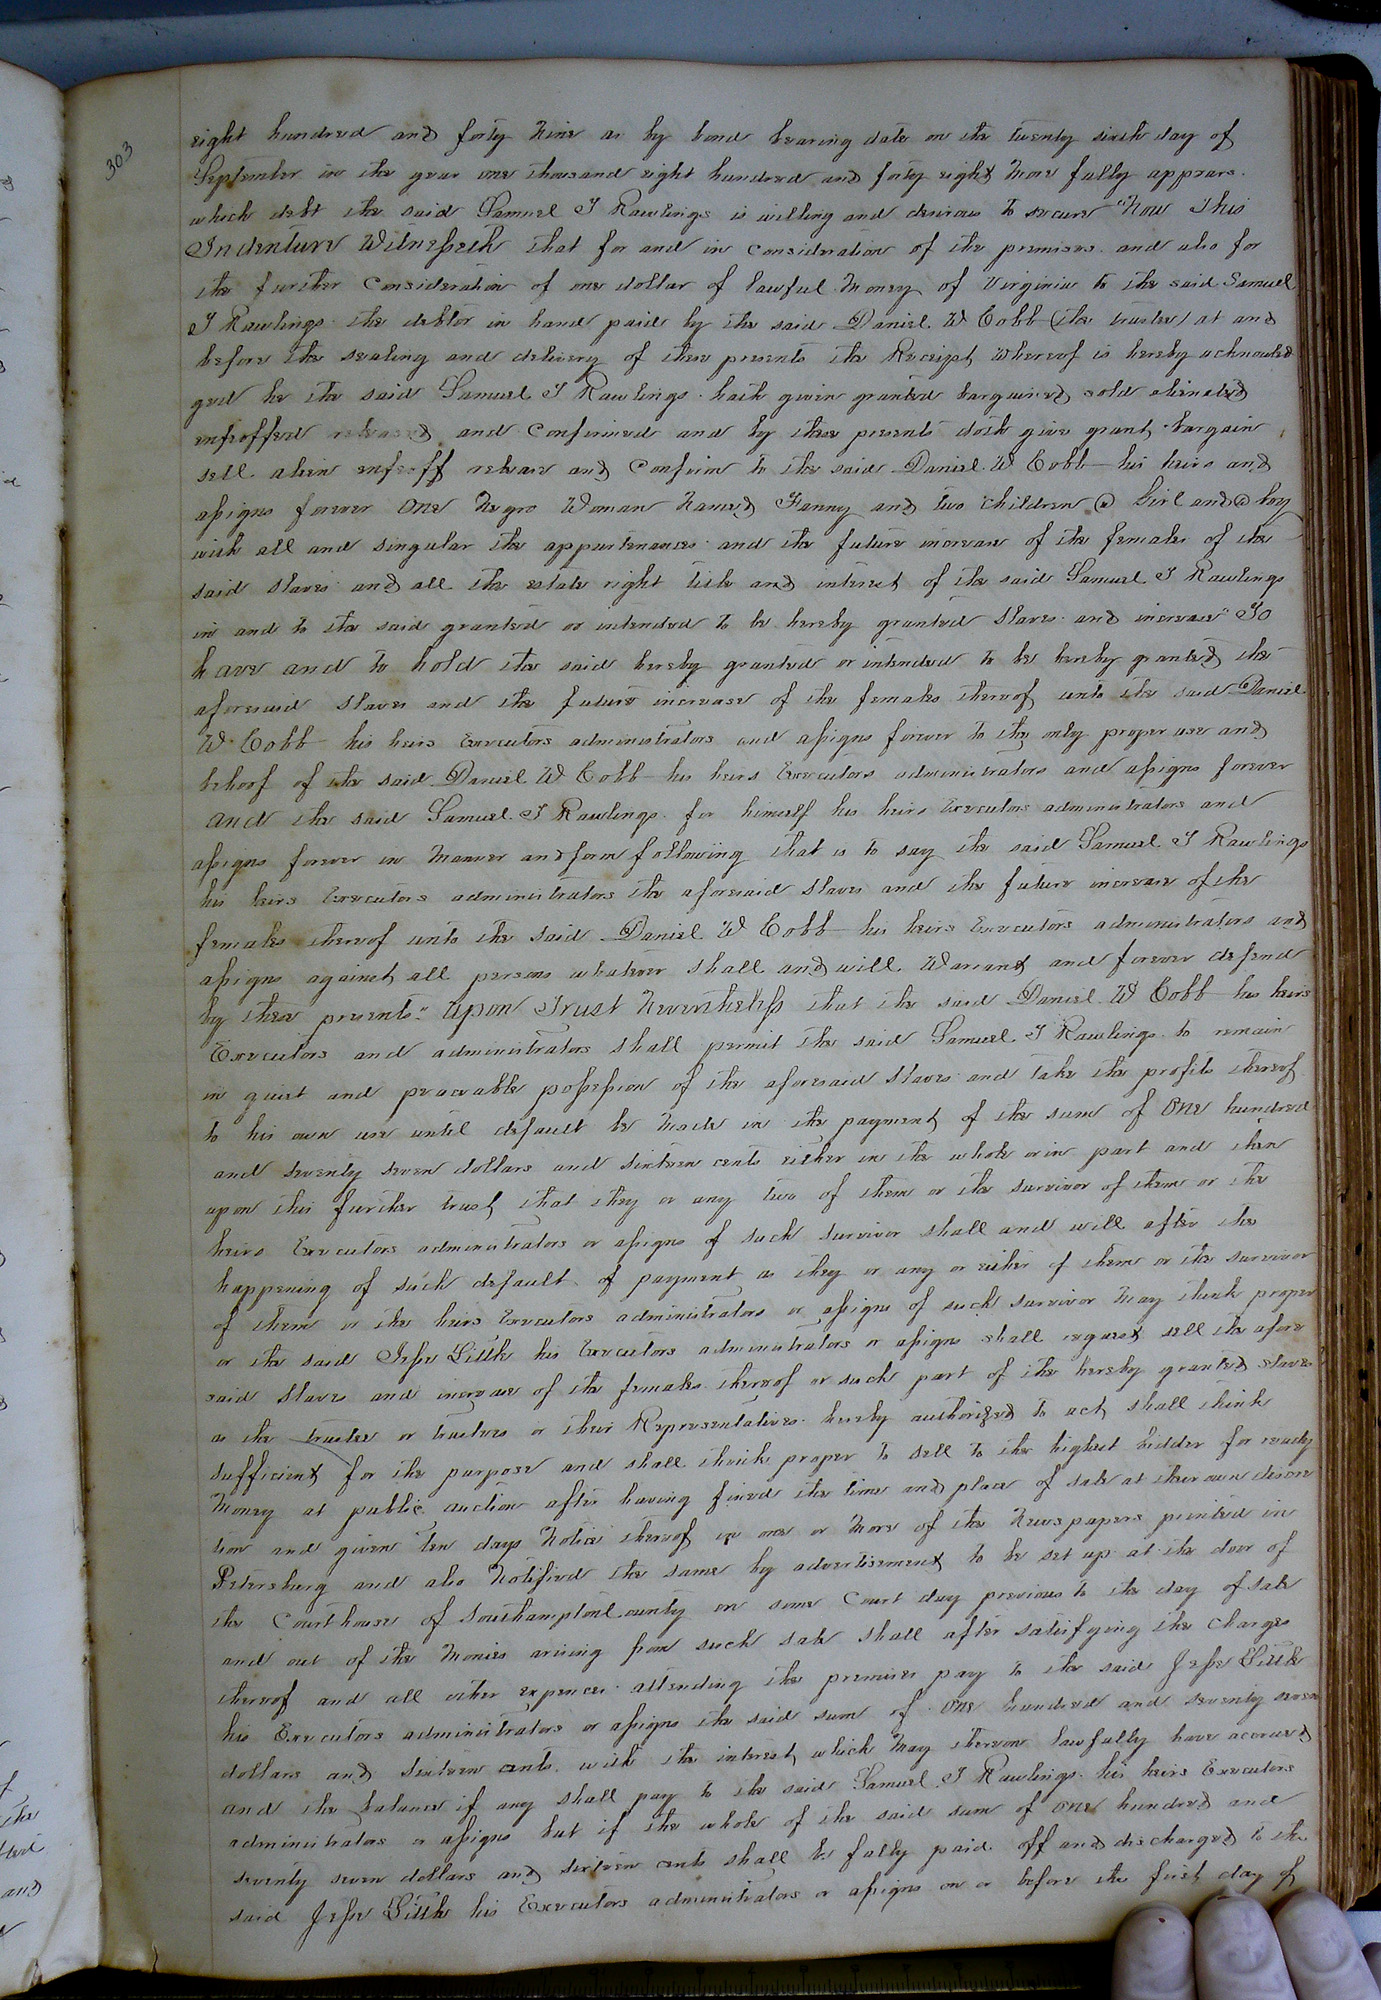 303
eight hundred and forty Nine as by bond bearing date on the twenty sixth day of
September in the year one thousand eight hundred and forty eight More fully appears.
which debt the said Samuel T Rawlings is willing and desirous to secure "Now This
Indenture Witnesseth that for and in Consideration of the premises and also for
the further Consideration of one dollar of lawful Money of Virginia to the said Samuel
T Rawlings the debtor in hand paid by the said Daniel W Cobb (the trustee) at and
before the sealing and delivery of these presents the Receipt Whereof is hereby acknowled
ged he the said Samuel T Rawlings hath given granted bargained sold alienated
enfeoffed released and Confirmed and by these presents doth give grant bargain
sell alien enfeoff release and Confirm to the said Daniel W Cobb his heirs and
assigns forever One Negro Woman Named Fanny and two Children @ Girl and @ boy
with all and singular the appurtenances and the future increase of the females of the
said Slaves and all the estate right title and interest of the said Samuel T Rawlings
in and to the said granted or intended to be hereby granted Slaves and increase" To
have and to hold the said hereby granted or intended to be hereby granted the
aforesaid Slaves and the future increase of the females thereof unto the said Daniel
W Cobb his heirs Executors administrators and assigns forever to the only proper use and
behoof of the said Daniel W Cobb his heirs Executors administrators and assigns forever
and the said Samuel T Rawlings for himself his heirs Executors administrators and
assigns forever in Manner and form following that is to say the said Samuel T Rawlings
his heirs Executors administrators the aforesaid Slaves and the future increase of the
females thereof unto the said Daniel W Cobb his heirs Executors administrators and
assigns against all persons whatever shall and will Warrant and forever defend
by these presents" Upon Trust Nevertheless that the said Daniel W Cobb his heirs
Executors and administrators shall permit the said Samuel T Rawlings to remain
in quiet and peaceable possession of the aforesaid Slaves and take the profits thereof
to his own use until default be Made in the payment of the sum of One hundred
and seventy seven dollars and sixteen cents either in the whole or in part and then
upon this further trust that they or any two of them or the survivor of them or the
heirs Executors administrators or assigns of such survivor shall and will after the
happening of such default of payment as they or any or either of them or the survivor
of them or the heirs Executors administrators or assigns of such survivor May think proper
or the said Jesse Little his Executors administrators or assigns shall request sell the afore
said Slaves and increase of the females thereof or such part of the hereby granted slaves
as the trustee or trustees or their Representatives hereby authorized to act shall think
sufficient for the purpose and shall think proper to sell to the highest bidder for ready
Money at public auction after having fixed the time and place of sale at their own discre
tion and given ten days Notice thereof in one or More of the Newspapers printed in
Petersburg and also Notified the same by advertisement to be set up at the door of
the Courthouse of Southampton County on some Court day previous to the day of sale
and out of the Monies arising from such sale shall after satisfying the Charges
thereof and all other expences attending the premises pay to the said Jesse Little
his Executors administrators or assigns the said sum of One hundred and seventy seven
dollars and sixteen cents with the interest which May thereon lawfully have accrued
and the balance if any shall pay to the said Samuel T Rawlings his heirs Executors
administrators or assigns but if the whole of the said sum of one hundred and
seventy seven dollars and sixteen cents shall be fully paid off and discharged to the
said Jesse Little his Executors administrators or assigns on or before the first day of